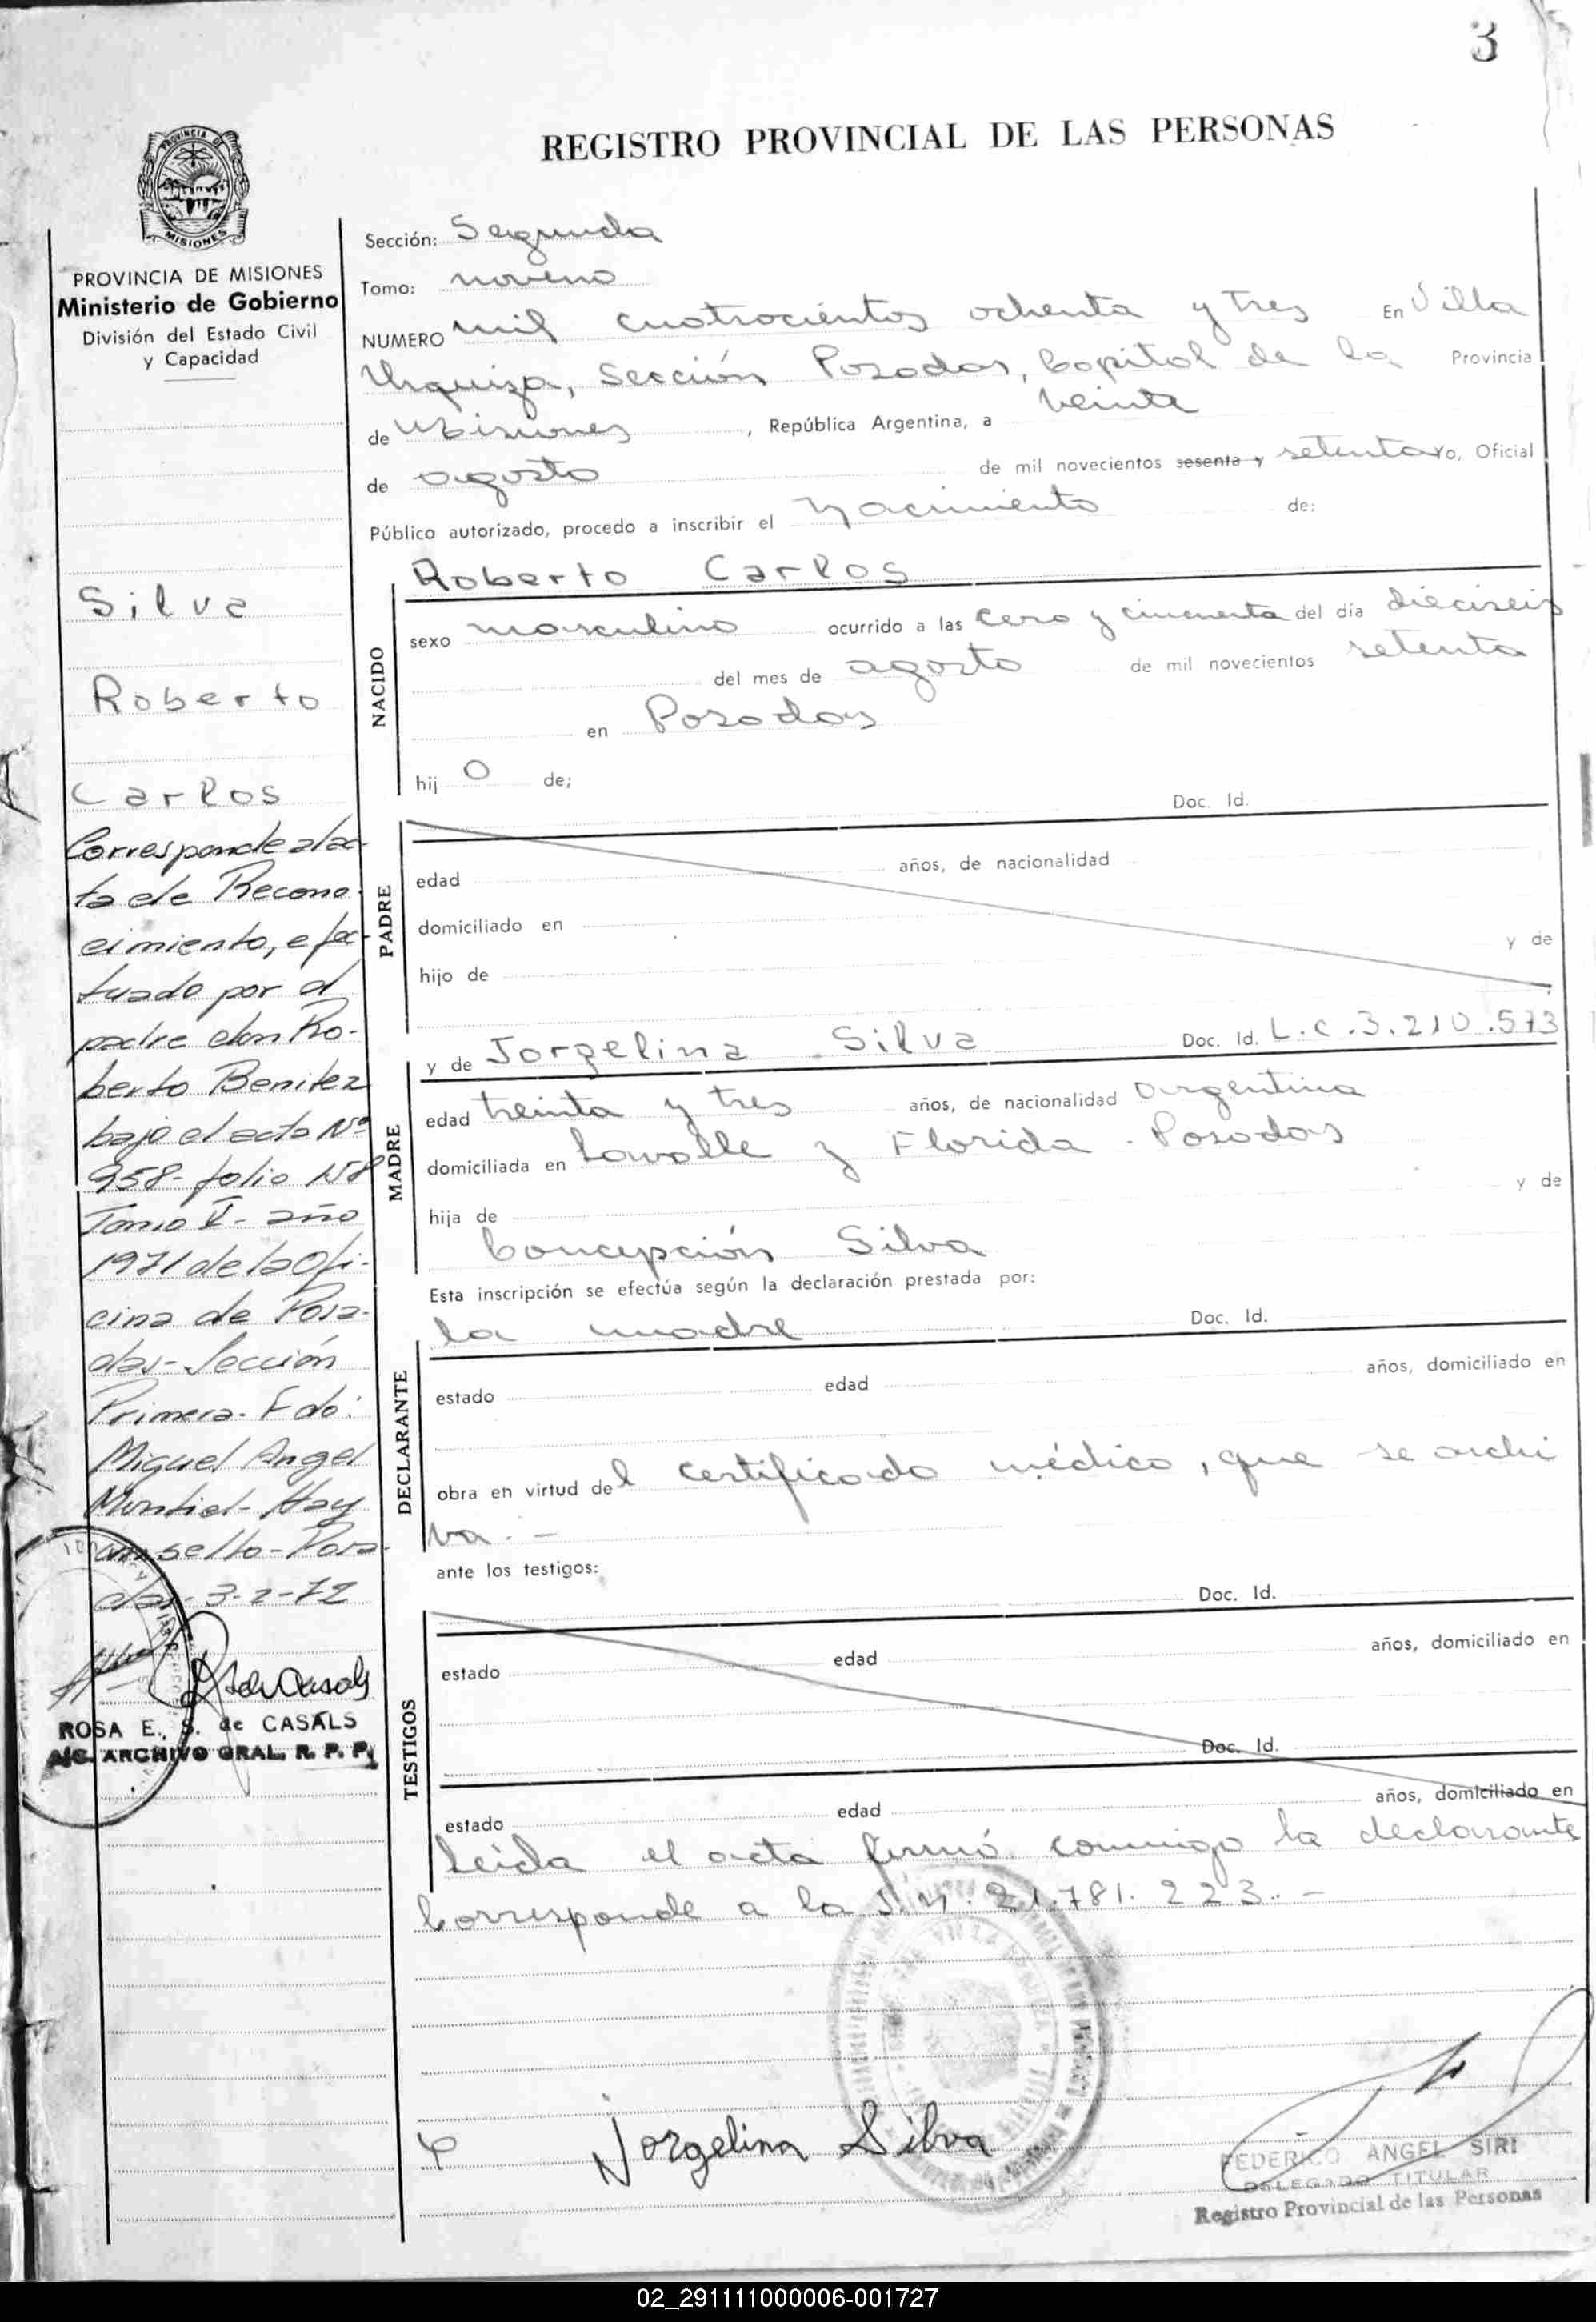 3
REGISTRO PROVINCIAL DE LAS PERSONAS
PROVINCIA DE
MISIONES
PROVINCIA DE MISIONES
Ministerio de Gobierno
División del Estado Civil
y Capacidad
Silva
Roberto
Carlos
Corresponde al ac-
ta de Recono
cimiento, efec-
tuado por el
padre don Ro-
berto Benitez
bajo el acta Nº
958- folio 158
Tomo V- año
1971 de la Ofi-
cina de Posa-
das- Sección
Primera- Fdo:
Miguel Angel
Montiel- Hay
un sello- Posa-
das- 3-2-72
ROSA E. S. de CASALS
A/C. ARCHIVO GRAL. R. P. P.
Sección: Segunda
Tomo: noveno
NUMERO mil cuatrocientos ochenta y tres En Villa
Urquiza, Sección Posadas, Capital de la Provincia
de Misiones, República Argentina, a veinte
de agosto de mil novecientos sesenta y setenta yo, Oficial
Público autorizado, procedo a inscribir el Nacimiento de:
NACIDO
Roberto Carlos
sexo masculino ocurrido a las cero y cincuenta del día dieciseis
del mes de agosto de mil novecientos setenta
en Posadas
hij o de;
PADRE
Doc. Id.
edad años, de nacionalidad
domiciliado en
hijo de y de
MADRE
y de Jorgelina Silva Doc. Id. L.C.3.210.573
edad treinta y tres años, de nacionalidad argentina
domiciliada en Lavalle y Florida - Posadas
hija de y de
Concepción Silva
Esta inscripción se efectúa según la declaración prestada por:
DECLARANTE
la madre Doc. Id.
estado edad años, domiciliado en
obra en virtud del certificado médico, que se archi
va. -
ante los testigos:
TESTIGOS
Doc. Id.
estado edad años, domiciliado en
Doc. Id.
estado edad años, domiciliado en
Leída el acta firmó conmigo la declarante
Corresponde a la 21.781.223. -
Jorgelina Silva
FEDERICO ANGEL SIRI
DELEGADO TITULAR
Registro Provincial de las Personas
02_291111000006-001727